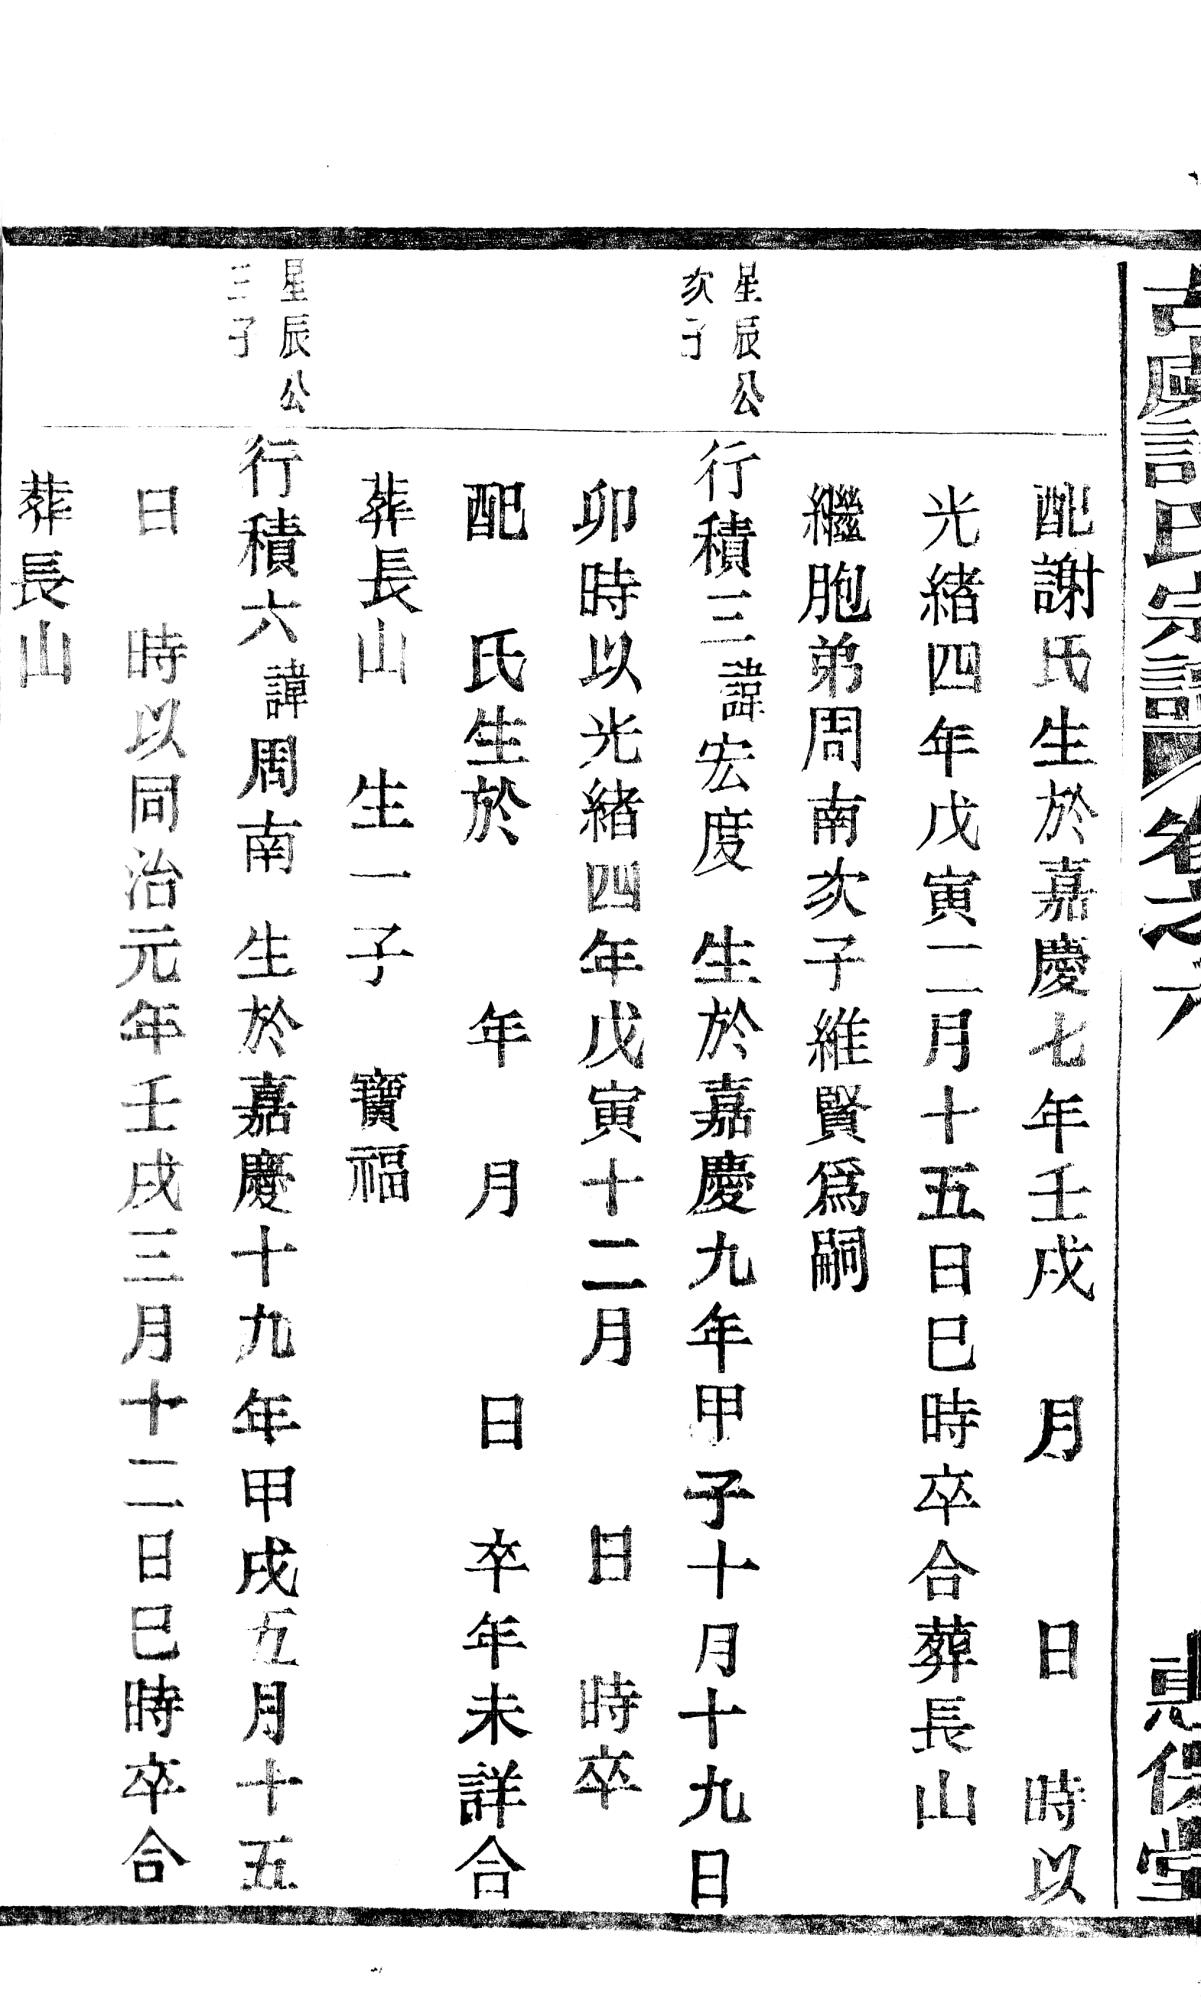 許氏宗譜 卷之六
惠保堂
配謝氏生於嘉慶七年壬戌 月 日 時以
光緒四年戊寅二月十五日巳時卒合葬長山
繼胞弟周南次子維賢爲嗣
星辰公
次子
行積三諱宏度 生於嘉慶九年甲子十月十九日
卯時以光緒四年戊寅十二月 日 時卒
配 氏生於 年 月 日 卒年未詳合
葬長山 生一子 寶福
星辰公
三子
行積六諱周南 生於嘉慶十九年甲戌五月十五
日 時以同治元年壬戌三月十二日巳時卒合
葬長山